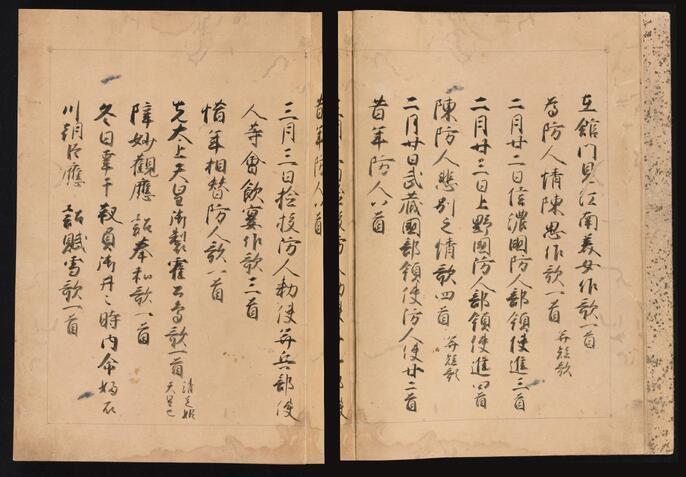 在館門見江南美女作歌一首
為防人情陳思作歌一首 并短歌
二月廿二日信濃國防人部領使進三首
二月廿三日上野國防人部領使進四首
陳防人悲別之情歌四首 并短歌
二月廿日武蔵國部領使防人使廿二首
昔年防人八首
昔年防人八首
三月三日撿挍防人勅使并兵部使
人等會飲宴作歌三首
惜年相替防人歌一首
先太上天皇御製霍公鳥歌一首 清足姫天皇也
薩妙觀應詔奉和歌一首
冬日幸于靱負御井之時内命婦石
川朝臣應 詔賦雪歌一首